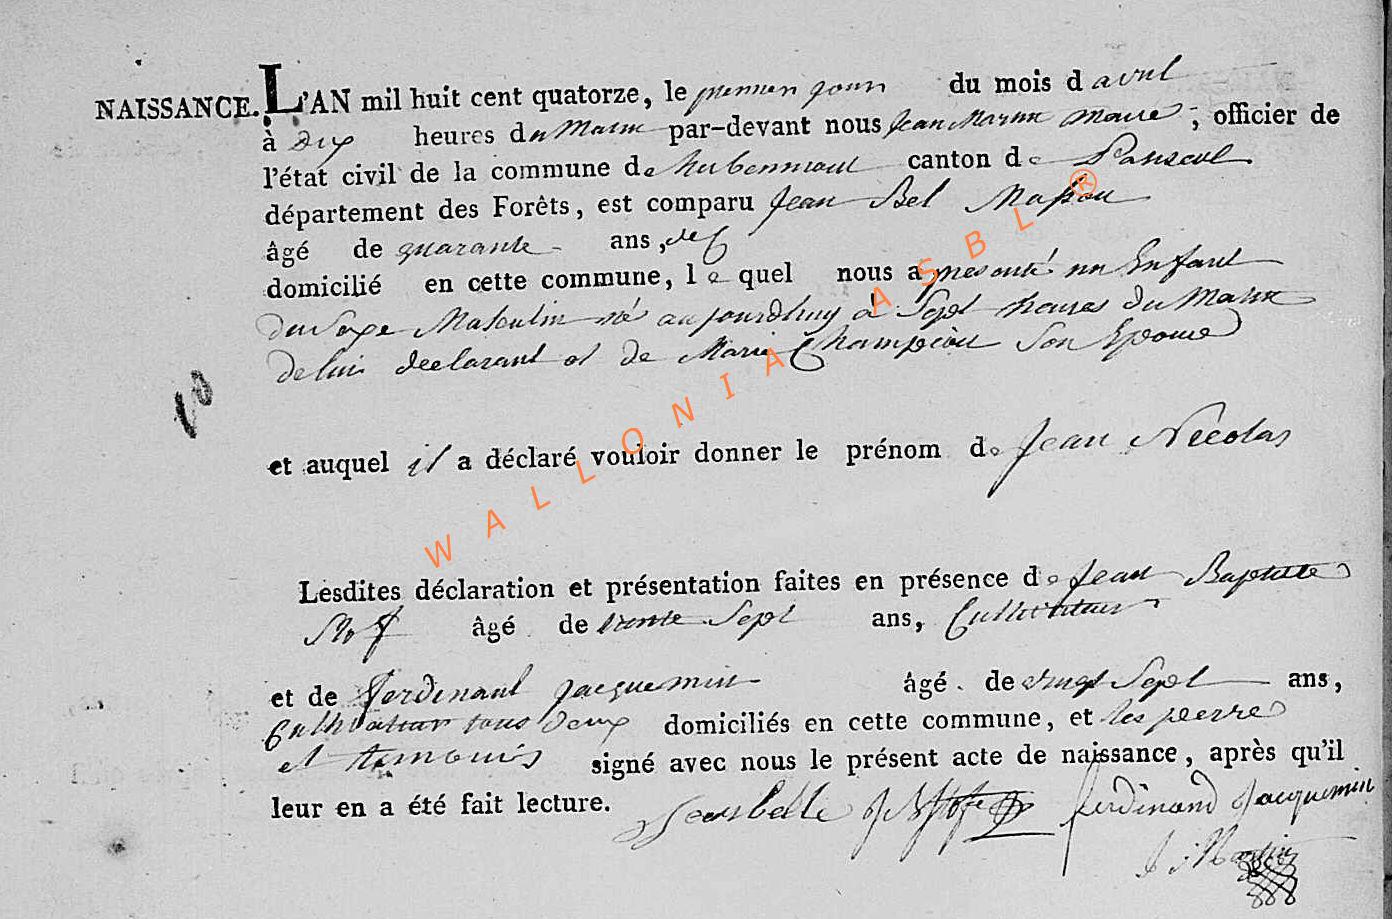 NAISSANCE. L'AN mil huit cent quatorze, le premier jour du mois d avril
à dix heures du Matin par-devant nous Jean Martin Maire ; officier de
l'état civil de la commune de hubermont canton de
département des Forêts, est comparu Jean Bel Masson
âgé de quarante ans,
domicilié en cette commune, le quel nous a presenté un Enfant
du Sexe Masculin né aujourdhuy à Sept heures du Matin
De lui declarant et de Marie Champion Son Epouse
10
et auquel il a déclaré vouloir donner le prénom de Jean Nicolas
Lesdites déclaration et présentation faites en présence de Jean Baptiste
âgé de trente Sept ans, Cultivateur
et de Ferdinant Jacquemin âgé de vingt Sept ans,
Cultivateur tous deux domiciliés en cette commune, et les peerre
et temouis signé avec nous le présent acte de naissance, après qu'il
leur en a été fait lecture. Jean belle ferdinand Jacquemin
J: Martin
WALLONIA ASBL ®